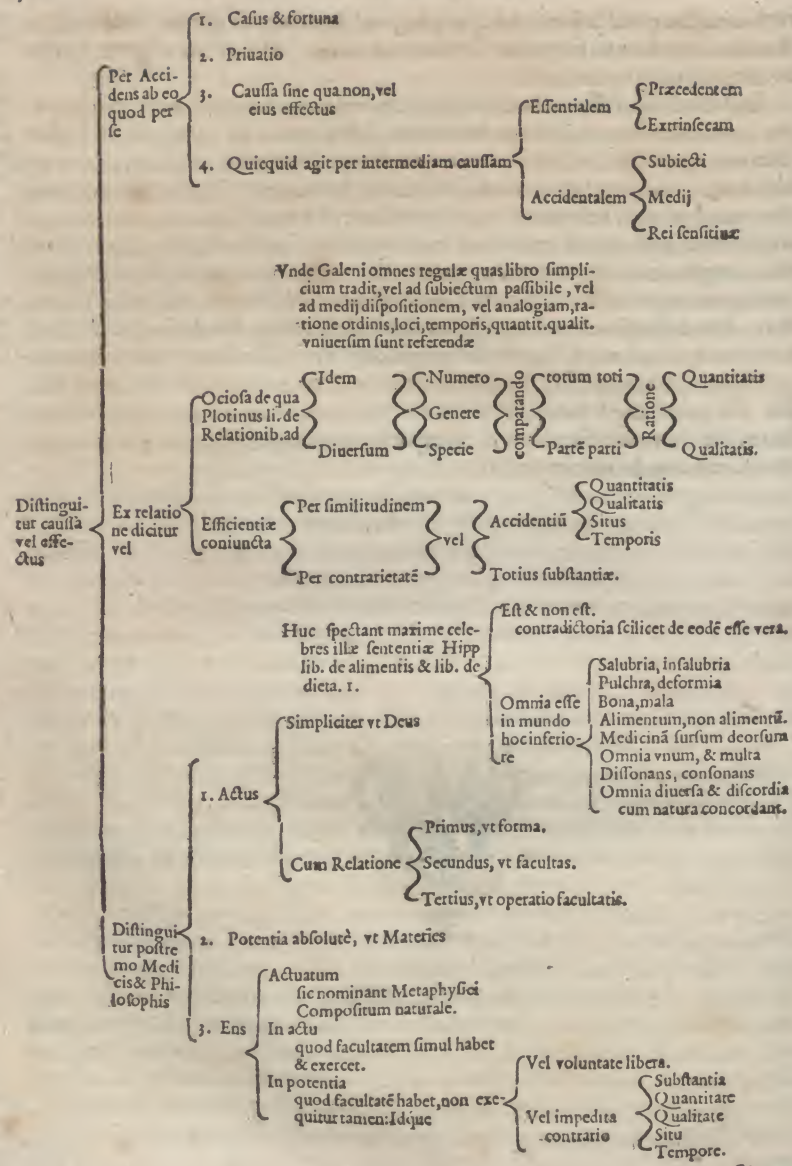 Distingui-
tur caussa
vel effe-
ctus
Per Acci-
dens ab eo
quod per
se
1. Casus & fortuna
2. Priuatio
3. Caussa sine qua non, vel
eius effectus
4. Quicquid agit per intermediam caussam
Essentialem
Præcedentem
Extrinsecam
Accidentalem
Subiecti
Medij
Rei sensitiuæ
Vnde Galeni omnes regulæ quas libro simpli-
cium tradit, vel ad subiectum passibile, vel
ad medij dispositionem, vel analogiam, ra-
tione ordinis, loci, temporis, quantit. qualit.
vniuersim sunt referendæ
Ex relatio
ne dicitur
vel
Ociosa de qua
Plotinus li. de
Relationib. ad
Idem
Diuersum
Numero
Genere
Specie
comparando
totum toti
Partē parti
Ratione
Quantitatis
Qualitatis.
Efficientiæ
coniuncta
Per similitudinem
Per contrarietatē
vel
Accidentiū
Quantitatis
Qualitatis
Situs
Temporis
Totius substantiæ.
Huc spectant maxime cele-
bres illæ sententiæ Hipp
lib. de alimentis & lib. de
dieta. 1.
Est & non est.
contradictoria scilicet de eodē esse vera.
Omnia esse
in mundo
hoc inferio-
re
Salubria, insalubria
Pulchra, deformia
Bona, mala
Alimentum, non alimentū.
Medicinā sursum deorsum
Omnia vnum, & multa
Dissonans, consonans
Omnia diuersa & discordia
cum natura concordant.
Distingui
tur postre
mo Medi
cis & Phi-
losophis
1. Actus
Simpliciter vt Deus
Cum Relatione
Primus, vt forma.
Secundus, vt facultas.
Tertius, vt operatio facultatis.
2. Potentia absolutè, vt Materies
3. Ens
Actuatum
sic nominant Metaphysici
Compositum naturale.
In actu
quod facultatem simul habet
& exercet.
In potentia
quod facultatē habet, non exe-
quitur tamen: Idque
Vel voluntate libera.
Vel impedita
contrario
Substantia
Quantitate
Qualitate
Situ
Tempore.